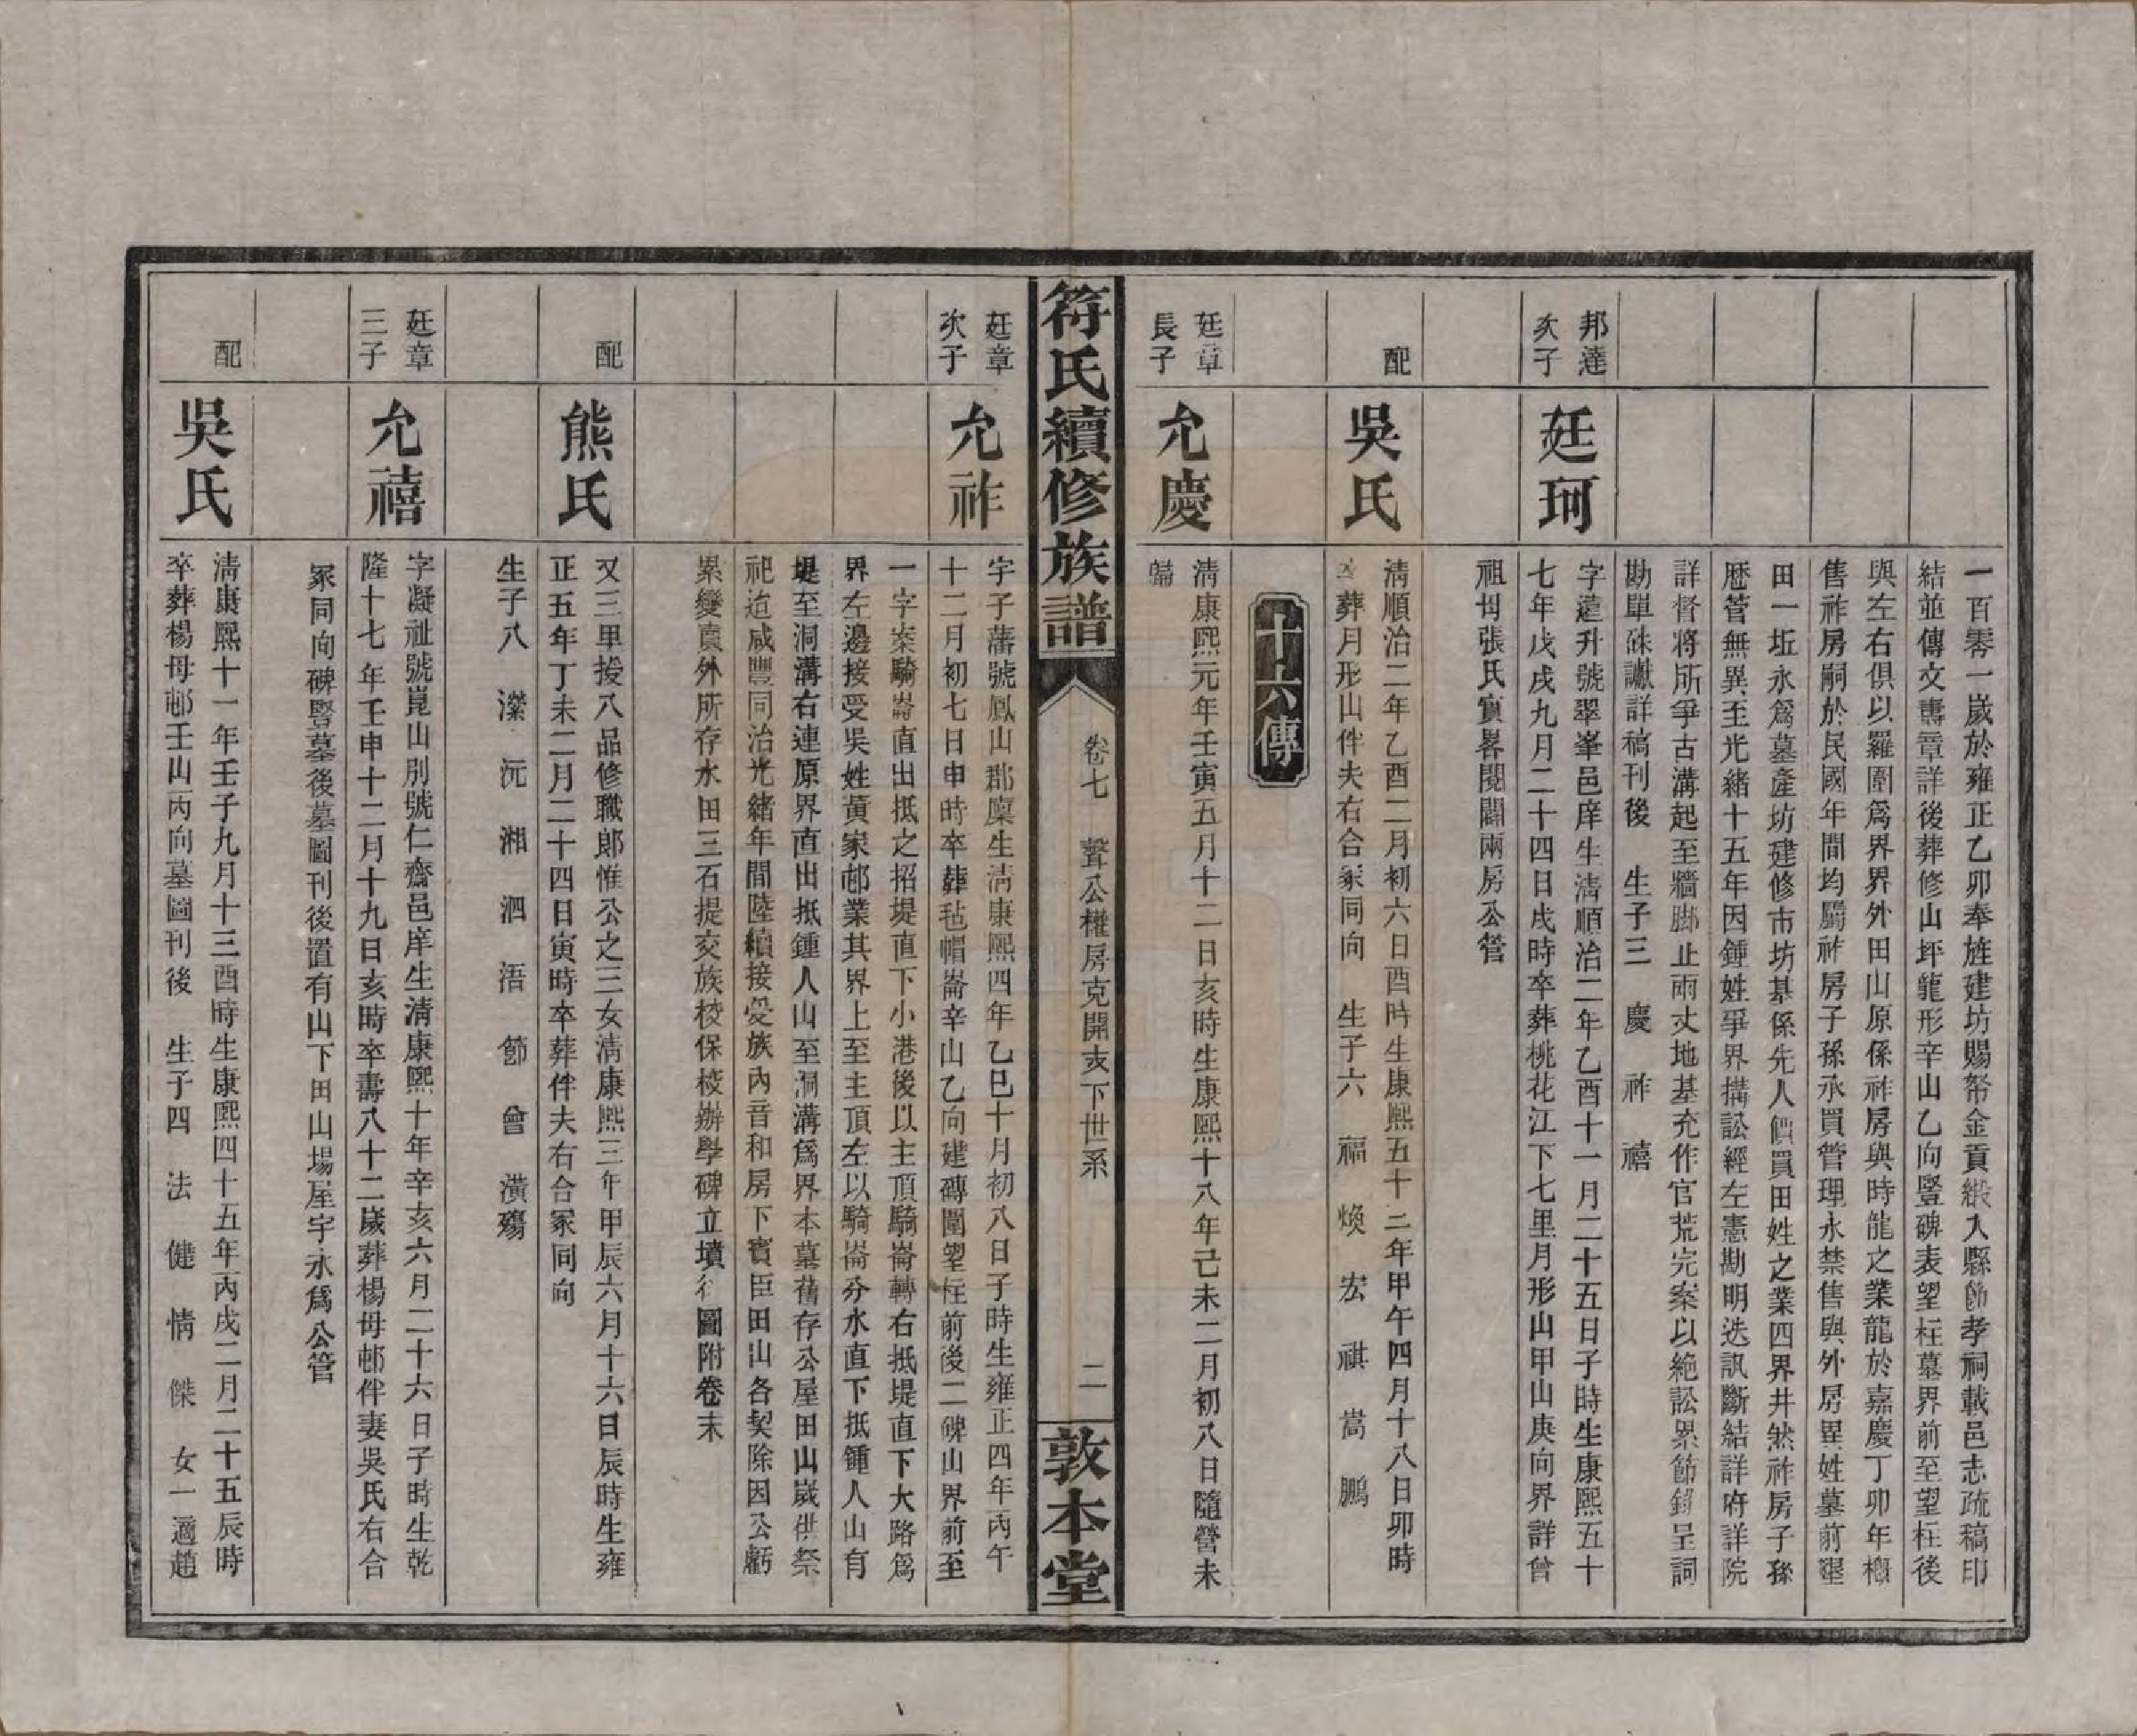 一百零一歲於雍正乙卯奉旌建坊賜帑金貢緞入縣節孝祠載邑志疏稿印
結並傳文壽章詳後葬修山坪龍形辛山乙向豎碑表望柱墓界前至望柱後
與左右俱以羅圍爲界界外田山原係祚房與時龍之業龍於嘉慶丁卯年概
售祚房嗣於民國年間均屬祚房子孫承買管理永禁售與外房異姓墓前墾
田一坵永爲墓產坊建修市坊基係先人價買田姓之業四界井然祚房子孫
歷管無異至光緒十五年因鍾姓爭界搆訟經左憲勘明迭訊斷結詳府詳院
詳督將所爭古溝起至牆腳止兩丈地基充作官荒完案以絕訟累節錄呈詞
勘單硃讞詳稿刊後 生子三 慶 祚 禧
邦達
次子
廷珂
字遠升號翠峯邑庠生清順治二年乙酉十一月二十五日子時生康熙五十
七年戊戌九月二十四日戌時卒葬桃花江下七里月形山甲山庚向界詳曾
祖母張氏實畧閱闘兩房公管
配
吳氏
清順治二年乙酉二月初六日酉時生康熙五十三年甲午四月十八日卯時
卒葬月形山伴夫右合冢同向 生子六 福 煥 宏 祺 嵩 鵬
十六傳
廷章
長子
允慶
清康熙元年壬寅五月十二日亥時生康熙十八年己未二月初八日隨營未
歸
符氏續修族譜
卷七 聲公權房克開支下世系
二
敦本堂
廷章
次子
允祚
字子藩號鳳山郡廩生清康熙四年乙巳十月初八日子時生雍正四年丙午
十二月初七日申時卒葬毡帽崙辛山乙向建磚圍望柱前後二碑山界前至
一字案騎崙直出抵之招堤直下小港後以主頂騎崙轉右抵堤直下大路爲
界左邊接受吳姓黃家邨業其界上至主頂左以騎崙分水直下抵鍾人山有
堤至洞溝右連原界直出抵鍾人山至洞溝爲界本墓舊存公屋田山歲供祭
祀迨咸豐同治光緒年間陸續接受族內音和房下賓臣田山各契除因公虧
累變賣外所存水田三石提交族校保校辦學碑立墳後圖附卷末
配
熊氏
又三里授八品修職郎惟公之三女清康熙三年甲辰六月十六日辰時生雍
正五年丁未二月二十四日寅時卒葬伴夫右合冢同向
生子八 灤 沅 湘 泗 浯 節 曾 潢殤
廷章
三子
允禧
字凝祉號崑山別號仁齋邑庠生清康熙十年辛亥六月二十六日子時生乾
隆十七年壬申十二月十九日亥時卒壽八十二歲葬楊母邨伴妻吳氏右合
冢同向碑豎墓後墓圖刊後置有山下田山場屋宇永爲公管
配
吳氏
清康熙十一年壬子九月十三酉時生康熙四十五年丙戌二月二十五辰時
卒葬楊母邨壬山丙向墓圖刊後 生子四 法 健 情 傑 女一適趙